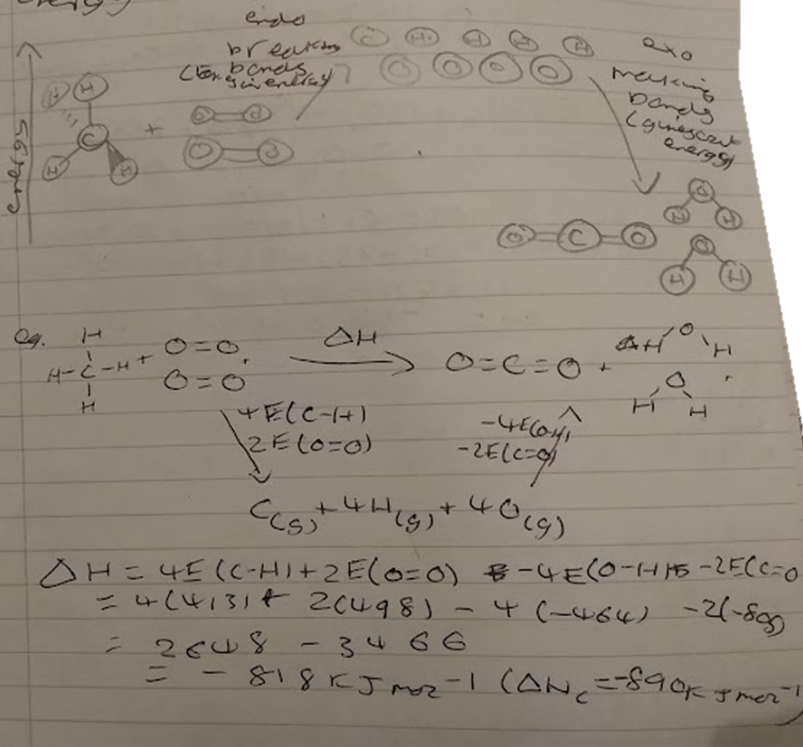 energy
endo
breaking
bonds
C H H H H
O O O O
exo
making
bonds
energy)
H H
C + O=O
H H O=O
O=C=O
O
H H
O
H H
eg. H
H-C-H + O=O
H O=O
ΔH
O=C=O +
H O H
O
H H
4E(C-H)
2E(O=O)
-4E(O-H)
-2E(C=O)
C(g) + 4H(g) + 4O(g)
ΔH = 4E(C-H) + 2E(O=O) -4E(O-H) -2E(C=O
= 4(413) + 2(498) - 4(-464) -2(-805)
= 2648 - 3466
= -818KJmol-1 (ΔHc=-890KJmol-1